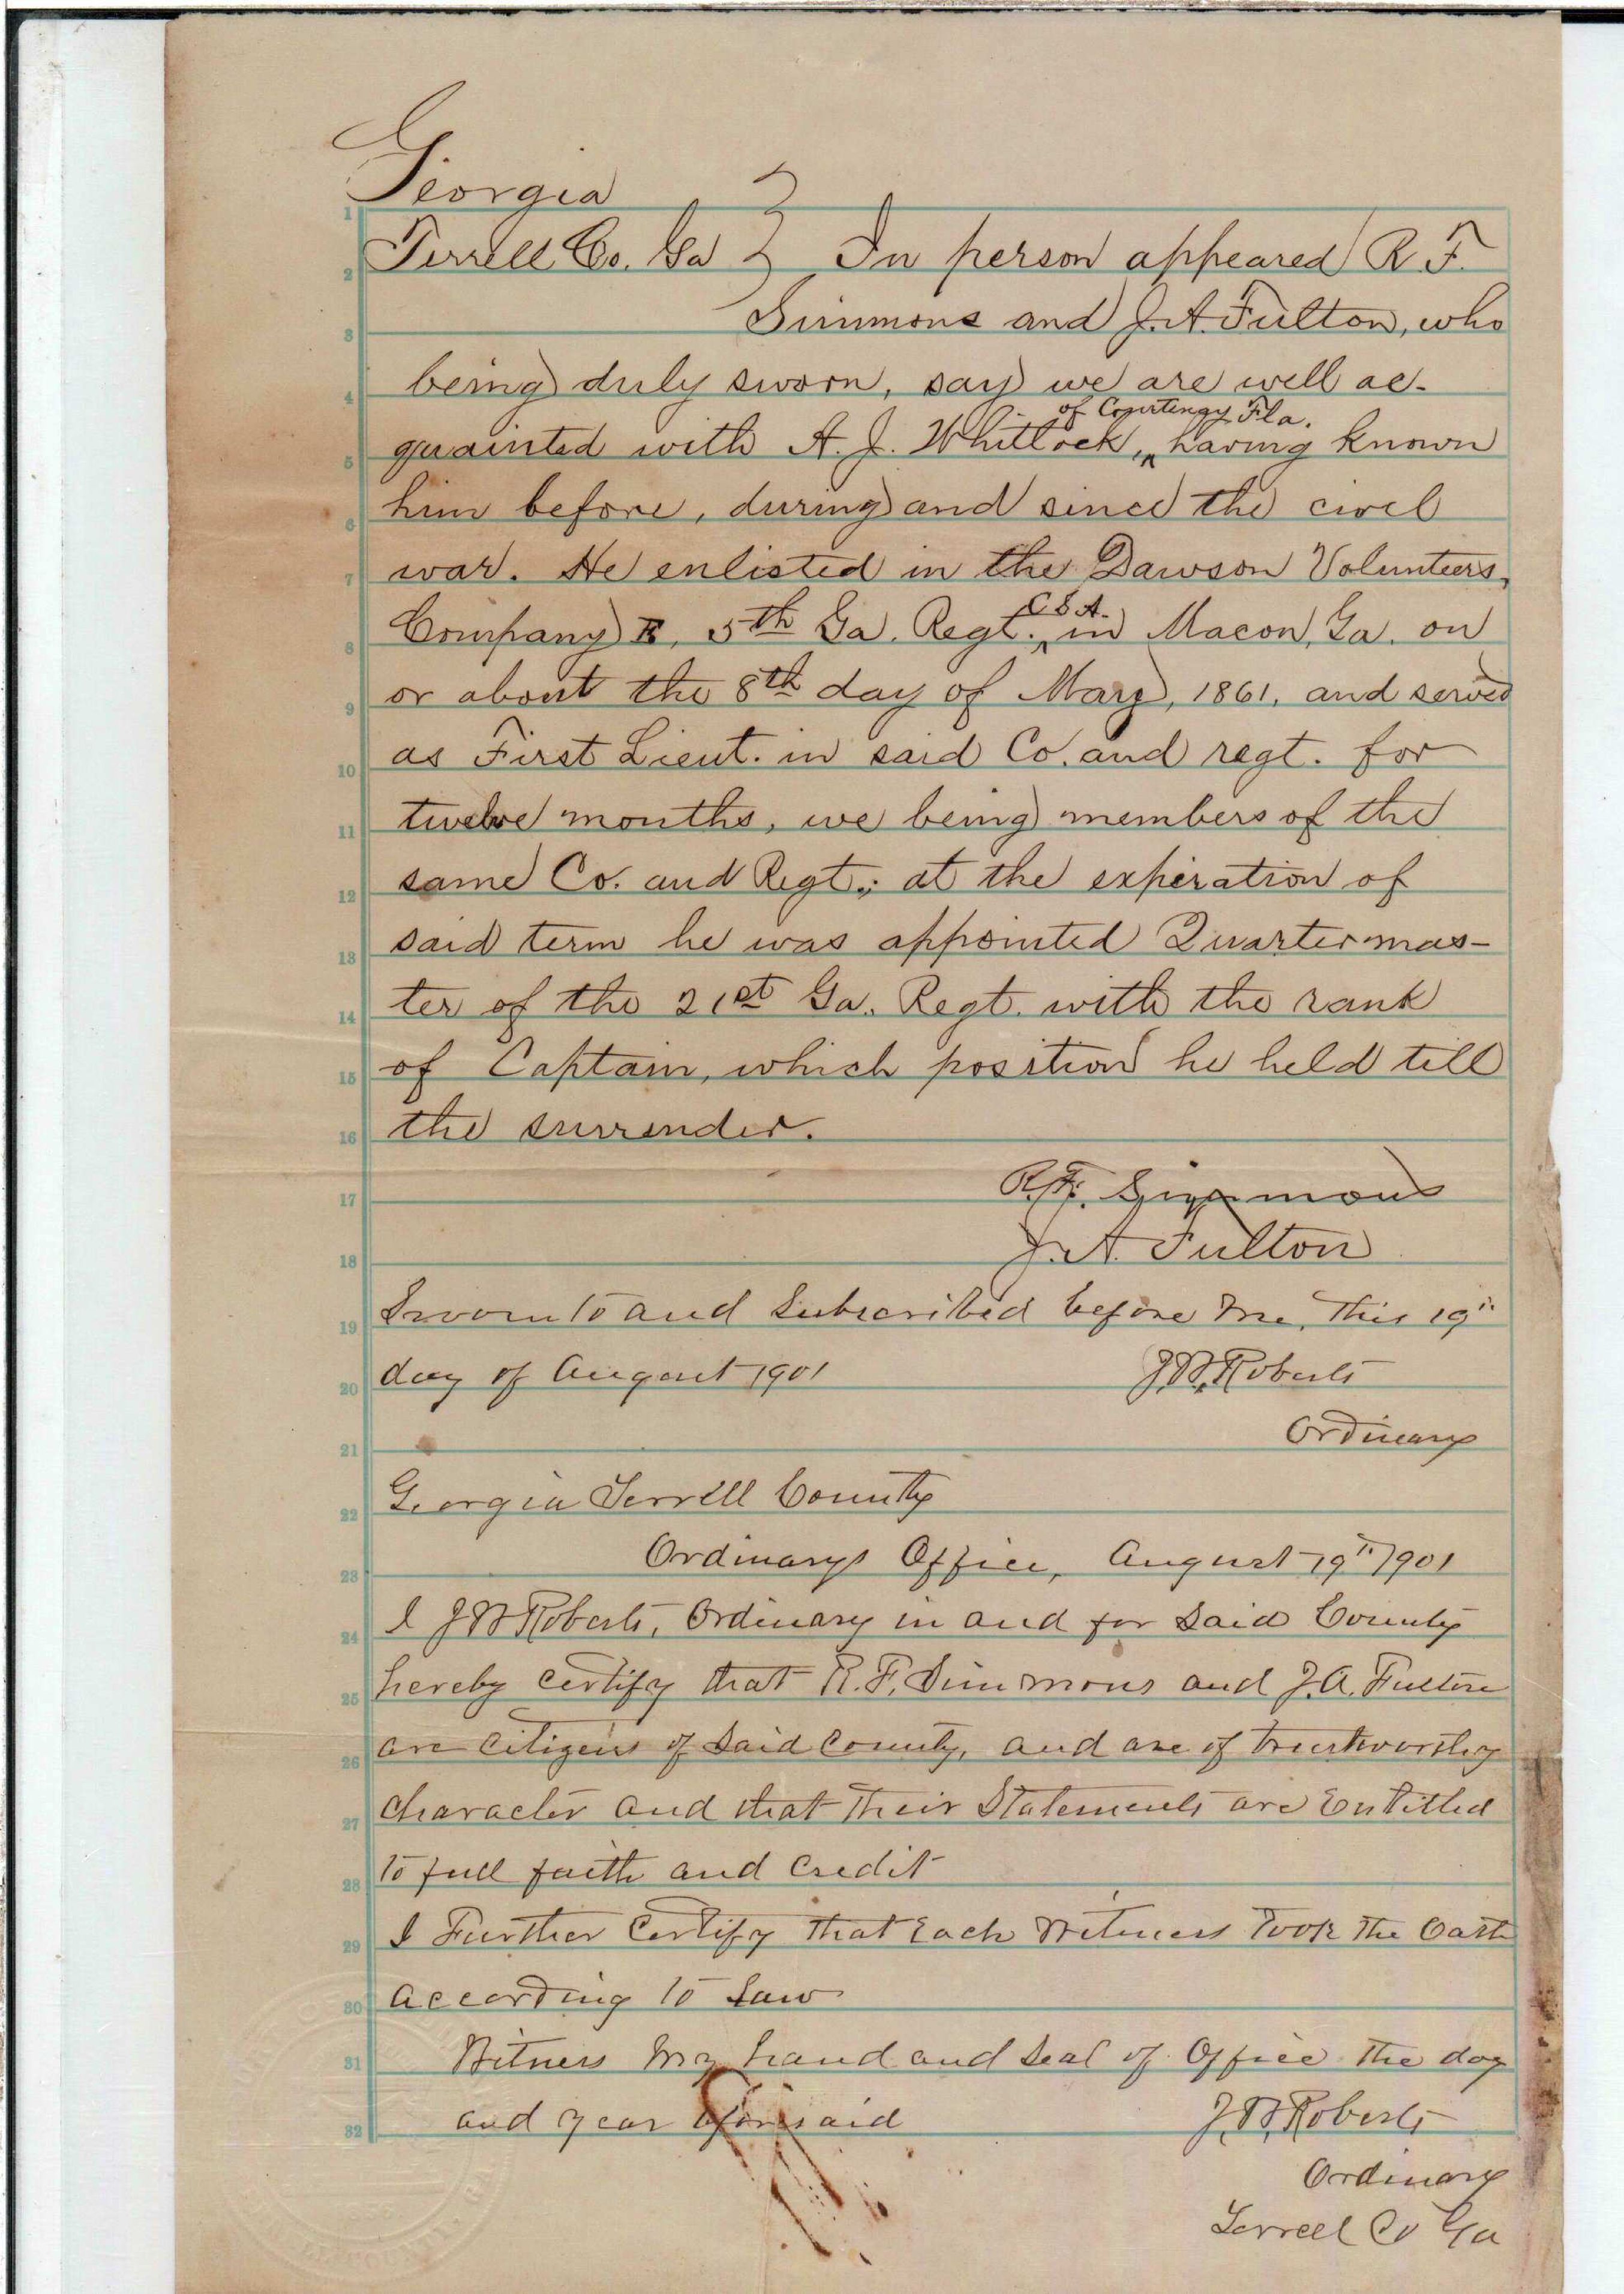 Georgia
Terrell Co. Ga } In person appeared R. F.
Simmons and J. A. Fulton, who
being duly sworn, say we are well ac-
of Courtenay Fla.
quainted with A. J. Whitlock, ^ having known
him before, during and since the civel
war. He enlisted in the Dawson Volunteers,
C S A.
Company E, 5th Ga. Regt. ^ in Macon, Ga. on
or about the 8th day of May, 1861, and served
as First Lieut. in said Co. and regt. for
twelve months, we being members of the
same Co. and Regt.; at the expiration of
said term he was appointed Quartermas-
ter of the 21st Ga. Regt. with the rank
of Captain, which position he held till
the surrender.
R. F. Simmons
J. A. Fulton
Sworn to and Subscribed before me, this 19th
day of August 1901 J. W. Roberts
Ordinary
Georgia Terrell County
Ordinarys Office, August 19th 1901
I J W Roberts, Ordinary in and for Said County
hereby certify that R. F. Simmons and J. A. Fulton
are citizens of Said County, and are of trustworthy
character and that Their Statements are Entitled
to full faith and credit
I Further Certify that Each Witness Took The Oath
according to Law
Witness my hand and Seal of Office the day
and year aforesaid J. W. Roberts
Ordinary
Terrell Co Ga
1
2
3
4
5
6
7
8
9
10
11
12
13
14
15
16
17
18
19
20
21
22
23
24
25
26
27
28
29
30
31
32